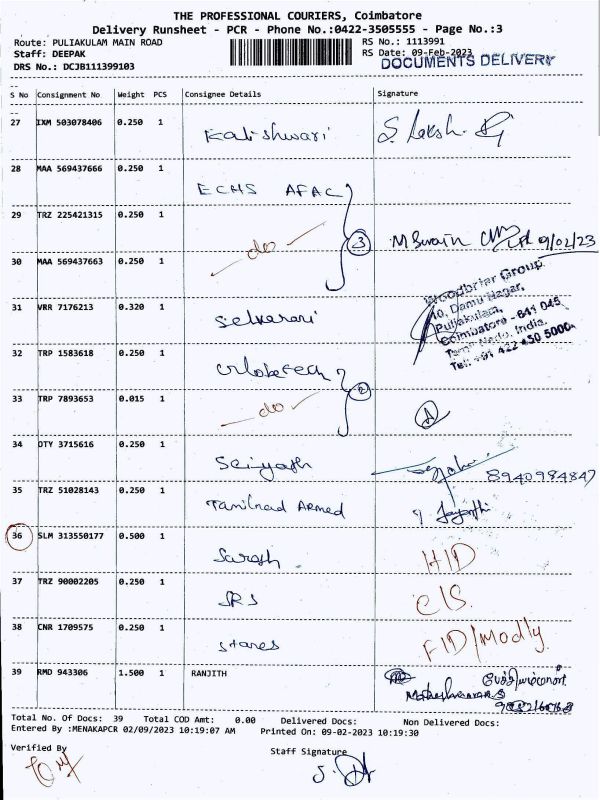 THE PROFESSIONAL COURIERS, Coimbatore
Delivery Runsheet - PCR - Phone No.:0422-3505555 - Page No.:3
Route: PULIAKULAM MAIN ROAD RS No.: 1113991
Staff: DEEPAK RS Date: 09-Feb-2023
DRS No.: DCJB111399103 DOCUMENTS DELIVERY
S No Consignment No Weight PCS Consignee Details Signature
27 IXM 503078406 0.250 1
28 MAA 569437666 0.250 1 ECHS AFAC
29 TRZ 225421315 0.250 1 do 3 M Swain 9/02/23
30 MAA 569437663 0.250 1
Woodbrier Group
10, Damu Nagar,
Puliakulam,
Coimbatore - 641 045
Tamil Nadu, India.
Tel: +91 422 450 5000
31 VRR 7176213 0.320 1 Selvarani
32 TRP 1583618 0.250 1
33 TRP 7893653 0.015 1 do 2
34 DTY 3715616 0.250 1 8940984847
35 TRZ 51028143 0.250 1 Tamilnad ARMED Jayanthi
36 SLM 313550177 0.500 1 HID
37 TRZ 90002205 0.250 1 SRS
38 CNR 1709575 0.250 1 stanes
39 RMD 943306 1.500 1 RANJITH
Total No. Of Docs: 39 Total COD Amt: 0.00 Delivered Docs: Non Delivered Docs:
Entered By :MENAKAPCR 02/09/2023 10:19:07 AM Printed On: 09-02-2023 10:19:30
Verified By Staff Signature